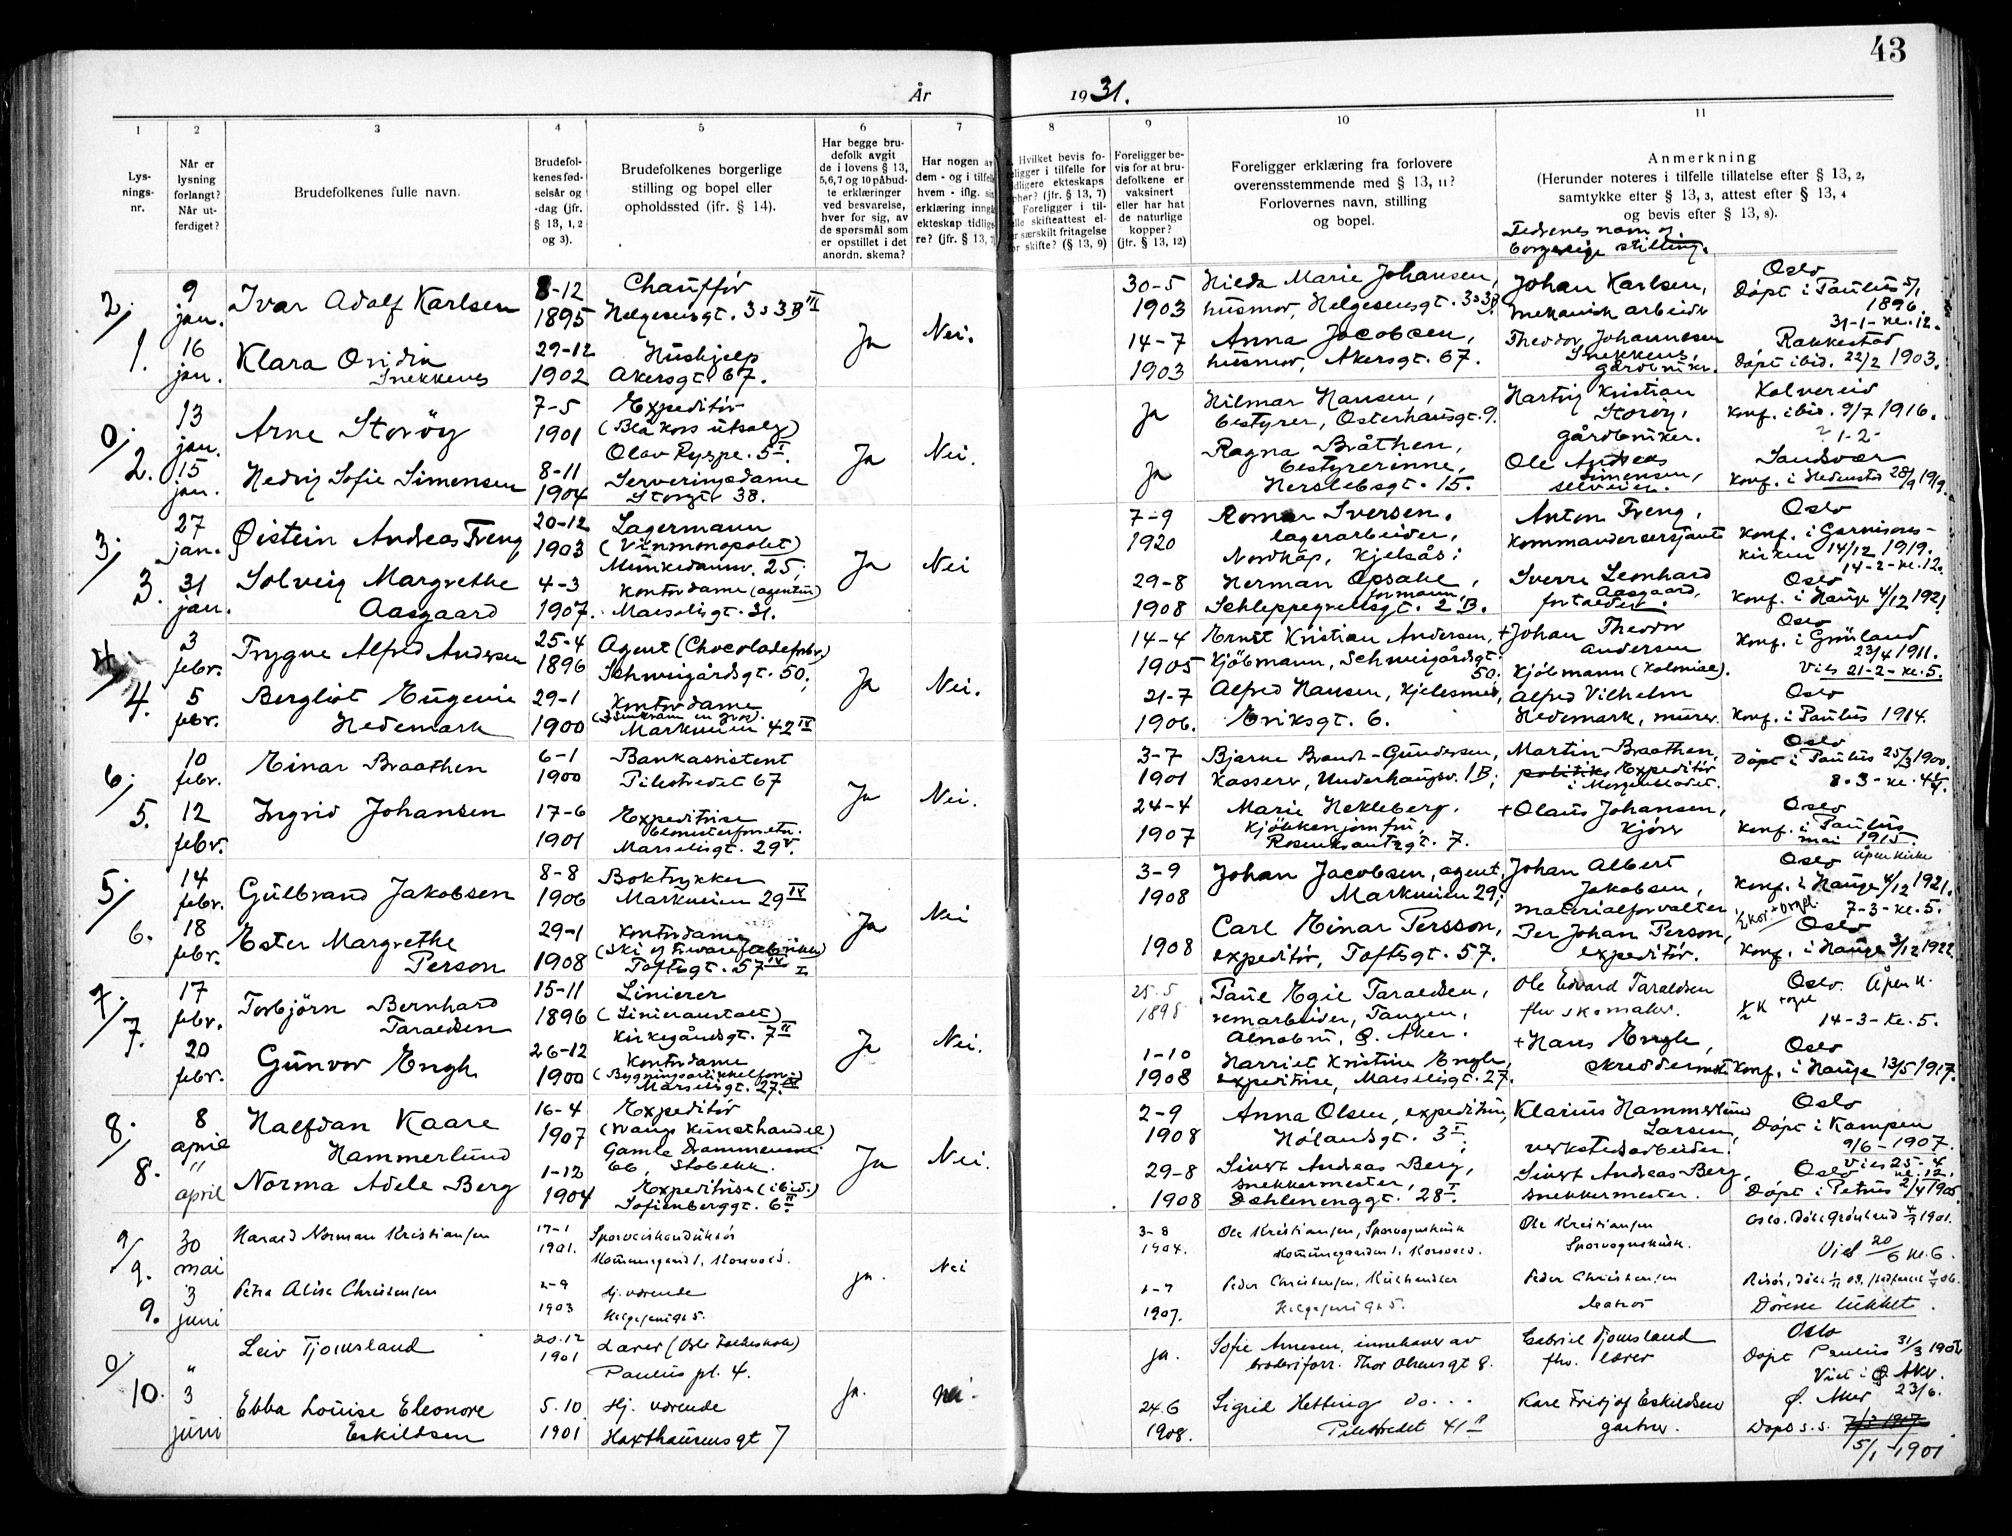 43
År 1931.
1 2 3 4 5 6 7 8 9 10 11
Lys-
nings-
nr.
Når er
lysning
forlangt?
Når ut-
ferdiget?
Brudefolkenes fulle navn.
Brudefol-
kenes fød-
selsår og
-dag (jfr.
§ 13, 1, 2
og 3).
Brudefolkenes borgerlige
stilling og bopel eller
opholdssted (jfr. § 14).
Har begge bru-
defolk avgit
de i lovens § 13,
5,6,7 og 10 påbud-
te erklæringer
ved besvarelse,
hver for sig, av
de spørsmål som
er opstillet i det
anordn. skema?
Har nogen av
dem - og i tilfelle
hvem - iflg.
erklæring inngå
ekteskap tidlige
re? (jfr. § 13, 7
Hvilket bevis fo-
religger i tilfelle for
tidligere ekteskaps
ophør? (jfr. § 13, 7)
Foreligger i til-
felle skifteattest el-
særskilt fritagelse
for skifte? (§ 13, 9)
Foreligger be-
vis for at bru-
defolkene er
vaksinert
eller har hat
de naturlige
kopper?
(jfr. § 13, 12)
Foreligger erklæring fra forlovere
overensstemmende med § 13, 11?
Forlovernes navn, stilling
og bopel.
Anmerkning
(Herunder noteres i tilfelle tillatelse efter § 13, 2,
samtykke efter § 13, 3, attest efter § 13, 4
og bevis efter § 13, 8).
Fedrenes navn og
borgerlige stilling.
2/1. 9 jan. 16 jan.
Ivar Adolf Karlsen
8-12 1895
Chauffør
Helgesensgt. 33 B III
Ja Nei.
30-5 1903
Hilda Marie Johansen,
husmor, Helgesensgt. 33 B
Johan Karlsen,
mekanisk arbeider
Oslo
Døpt i Paulus 5/1
1896.
31-1- kl. 12.
Klara Ovidia
Snekkenes
29-12 1902
Hushjelp
Akersgt. 67.
14-7 1903
Anna Jacobsen,
husmor, Akersgt. 67.
Theodor Johannesen
Snekkenes,
gårdbruker.
Rakkestad
Døpt ibid. 22/2 1903.
0/2. 13 jan. 15 jan.
Arne Storöy
7-5 1901
Expeditör
(Blå Kors utsalg)
Olav Ryespl. 5 I.
Ja Nei.
Ja
Hilmar Hansen,
bestyrer, Osterhausgt. 9.
Hartvig Kristian
Storöy,
gårdbruker.
Kolvereid
Konf. ibid. 9/7 1916.
Hedvig Sofie Simensen
8-11 1904
Serveringsdame
Storgt. 38.
Ja
Ragna Bråthen,
bestyrerinne,
Herslebsgt. 15.
Ole Andreas
Simensen,
selveier.
Sandsvær
Konf. i Hedenstad 28/9 1919.
3/3. 27 jan. 31 jan.
Øistein Andreas Treng
20-12 1903
Lagermann
(Vinmonopolet)
Munkedamsv. 25;
Ja Nei
7-9 1920
Romar Iversen,
lagerarbeider,
Nordkap, Kjelsås;
Anton Treng,
Kommandersersjant
Oslo
Konf. i Garnisons-
kirken 14/12 1919.
14-2- kl. 12.
Solveig Margrethe
Aasgaard
4-3 1907.
Kontordame (agentur)
Marselisgt. 31.
29-8 1908
Herman Opsahl,
formann,
Schleppegrellsgt. 2 B.
Sverre Leonhard
Aasgaard,
Oslo
Konf. i Hauge 4/12 1921
4/4. 3 febr. 5 febr.
Trygve Alfred Andersen
25-4 1896
Agent (Chocoladefabr.)
Schweigårdsgt. 50;
Ja Nei.
14-4 1905
Ernst Kristian Andersen,
Kjöbmann, Schweigårdsgt.
50;
+Johan Theodor
Andersen
Kjöbmann (Kolonial).
Oslo
Konf. i Grönland
23/4 1911.
Vies 21-2- kl. 5.
Bergliot Eugenie
Hedemark
29-1 1900
Kontordame
Markveien 42 IV
21-7 1906.
Alfred Hansen,
Eriksgt. 6.
Alfred Vilhelm
Hedemark, murer.
Oslo
Konf. i Paulus 1914.
6/5. 10 febr. 12 febr.
Einar Braathen
6-1 1900
Bankassistent
Pilestredet 67
Ja Nei.
3-7 1901
Bjarne Brandt-Gundersen,
Kasserer, Underhaugsv. 1 B;
Martin Braathen,
Expeditör
i Morgenbladet.
Oslo
Döpt i Paulus 25/3 1900.
8-3- kl. 4½.
Ingrid Johansen
17-6 1901
Expeditrise
blomsterforretn.
Marselisgt. 29 V.
24-4 1907
Marie Hekleberg,
Kjökkenjomfru,
Rosenkrantzgt. 7.
+Olaus Johansen,
Kjörer
Oslo
Konf. i Paulus
mai 1915.
5/6. 14 febr. 18 febr.
Gulbrand Jakobsen
8-8 1906
Boktrykker
Markveien 29 IV
Ja Nei
3-9 1908
Johan Jacobsen, agent,
Markveien 29;
Johan Albert
Jakobsen,
materialforvalter
Oslo Åpen kirke
Konf. i Hauge 4/12 1921.
7-3- kl. 5.
½ Kor + orgel.
Ester Margrethe
Person
29-1 1908
Kontordame
Toftsgt. 57
1908
Carl Einar Persson,
expeditör, Toftsgt. 57.
Per Johan Person,
expeditör.
Oslo
Konf. i Hauge 3/12 1922
7/7. 17 febr. 20 febr.
Torbjörn Bernhard
Taraldsen
15-11 1896
Linierer
(Linieranstalt)
Kirkegårdsgt. 7 II
Ja Nei.
25-5 1898
Paul Egil Taraldsen,
remarbeider, Tangen,
Alnabru, Ø. Aker.
Ole Edvard Taraldsen
fhv. skomaker.
Oslo. Åpen k.
½ K + orgel
14-3- kl. 5.
Gunvor Engh
26-12 1900
Kontordame
Marselisgt. 27. IV
1-10 1908
Harriet Kristine Engh,
expeditrise, Marselisgt. 27.
+Hans Engh,
skreddermst.
Oslo
Konf. i Hauge 13/5 1917.
8/8. 8 april " april
Halfdan Kaare
Hammerlund
16-4 1907
Expeditör
(Wangs Kunsthandel)
Gamle Drammensvei
66, Stabekk.
Ja Nei.
2-9 1908
Anna Olsen, expeditrise,
Hölandsgt. 3 I;
Klarius Hammerlund
Larsen,
verkstedsarbeider.
Oslo
Döpt i Kampen
9/6-1907.
Vies 25-4
kl. 12.
Norma Adele Berg
1-12 1904
Expeditrise (ibid.)
Sofienberggt. 6 II
29-8 1908
Sivert Andreas Berg,
snekkermester,
Dahlenenggt. 28 I.
Sivert Andreas Berg,
snekkermester.
Oslo
Döpt i Petrus 2/4 1905.
9/9. 30 mai 3 juni 9.
Harald Norman Kristiansen
17-1 1901.
Sporveiskonduktör
Kommunegaard 1, Korsvold.
ja. Nei
3-8 1904.
Ole Kristiansen, Sporvognskusk
Kommunegaarden 1, Korsvold.
Ole Kristiansen
Sporvognskusk.
Oslo. Döbt Grönland 1901.
Viet 20/6 kl. 6.
Petra Alise Christensen
2-9 1903
Hj. værende
Helgesensgt 5.
1-7 1907.
Peder Christensen,
Helgesensgt 5.
Peder Christensen
Matros
Dörene lukket.
0/10. " 3 juni
Leiv Tjomsland
20.12 1901
Lærer (Oslo Folkeskole)
Paulus pl. 4.
ja. nei.
ja.
Sofie Arnesen, innehaver av
broderiforr. Thor Olsens gt 8.
Gabriel Tjomsland
fhv. lærer
Oslo
Döpt Paulus 31/3 1902
Viet i Ø. Aker.
23/6.
Ebba Louise Eleonore
Eskildsen
5.10 1901
Hj. værende
Haxthausens gt 7
24.6 1908.
Sigrid Hetting Do...
Pilestredet 41
Kare Fritjof Eskildsen
gartner.
Ø. Aker
Döpt s.s.
5/1-1901